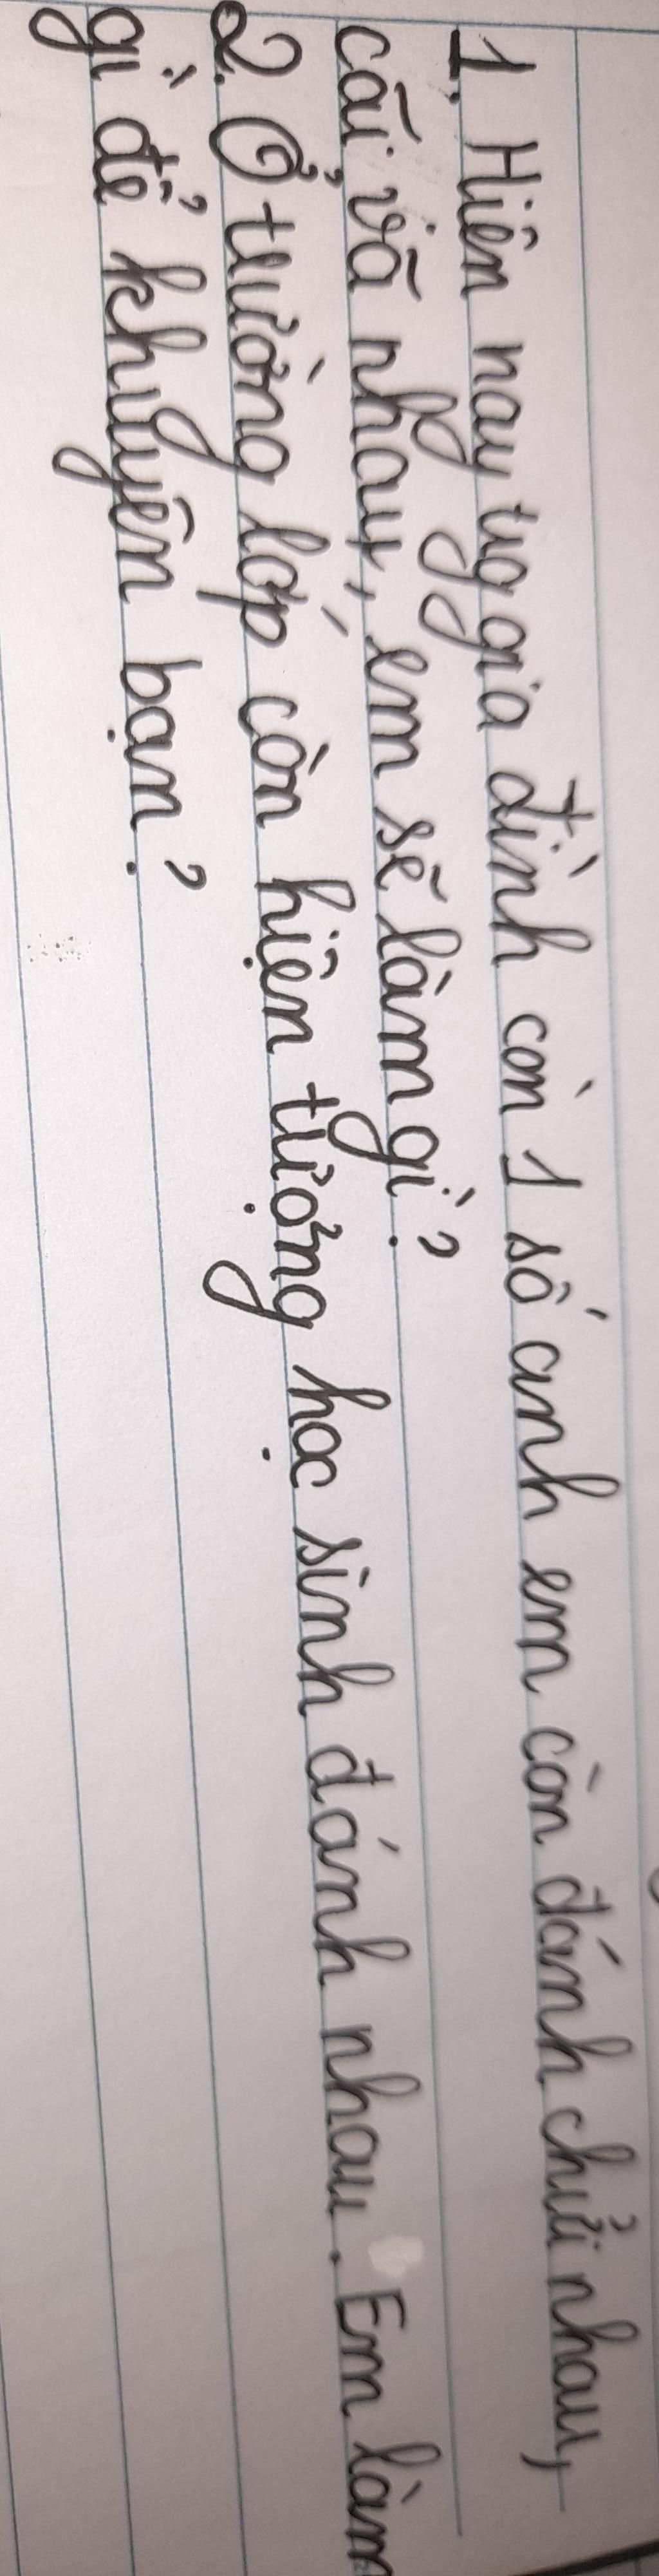 1. Hiện nay trg gia đình còn 1 số anh em còn đánh chửi nhau,
cãi vã nhau, em sẽ làm gì?
2. Ở trường lớp còn hiện tượng học sinh đánh nhau. Em làm
gì để khuyên bạn?